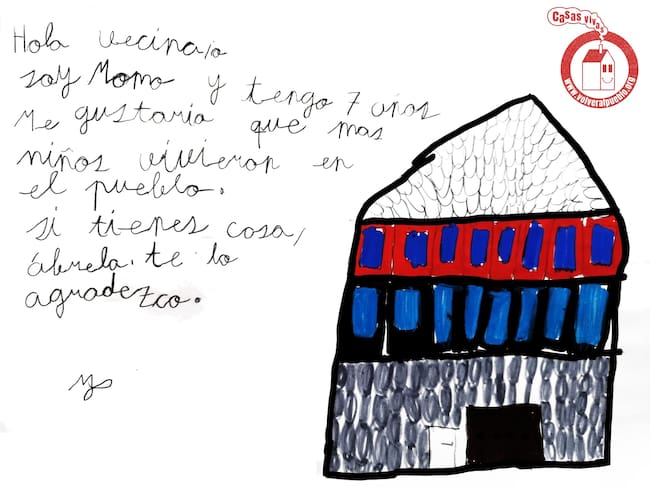 Hola vecina/o
soy Momo y tengo 7 años
Me gustaria que mas
niños vivieran en
el pueblo.
si tienes casa,
ábrela. te lo
agradezco.
Casas vivas
www.volveralpueblo.org